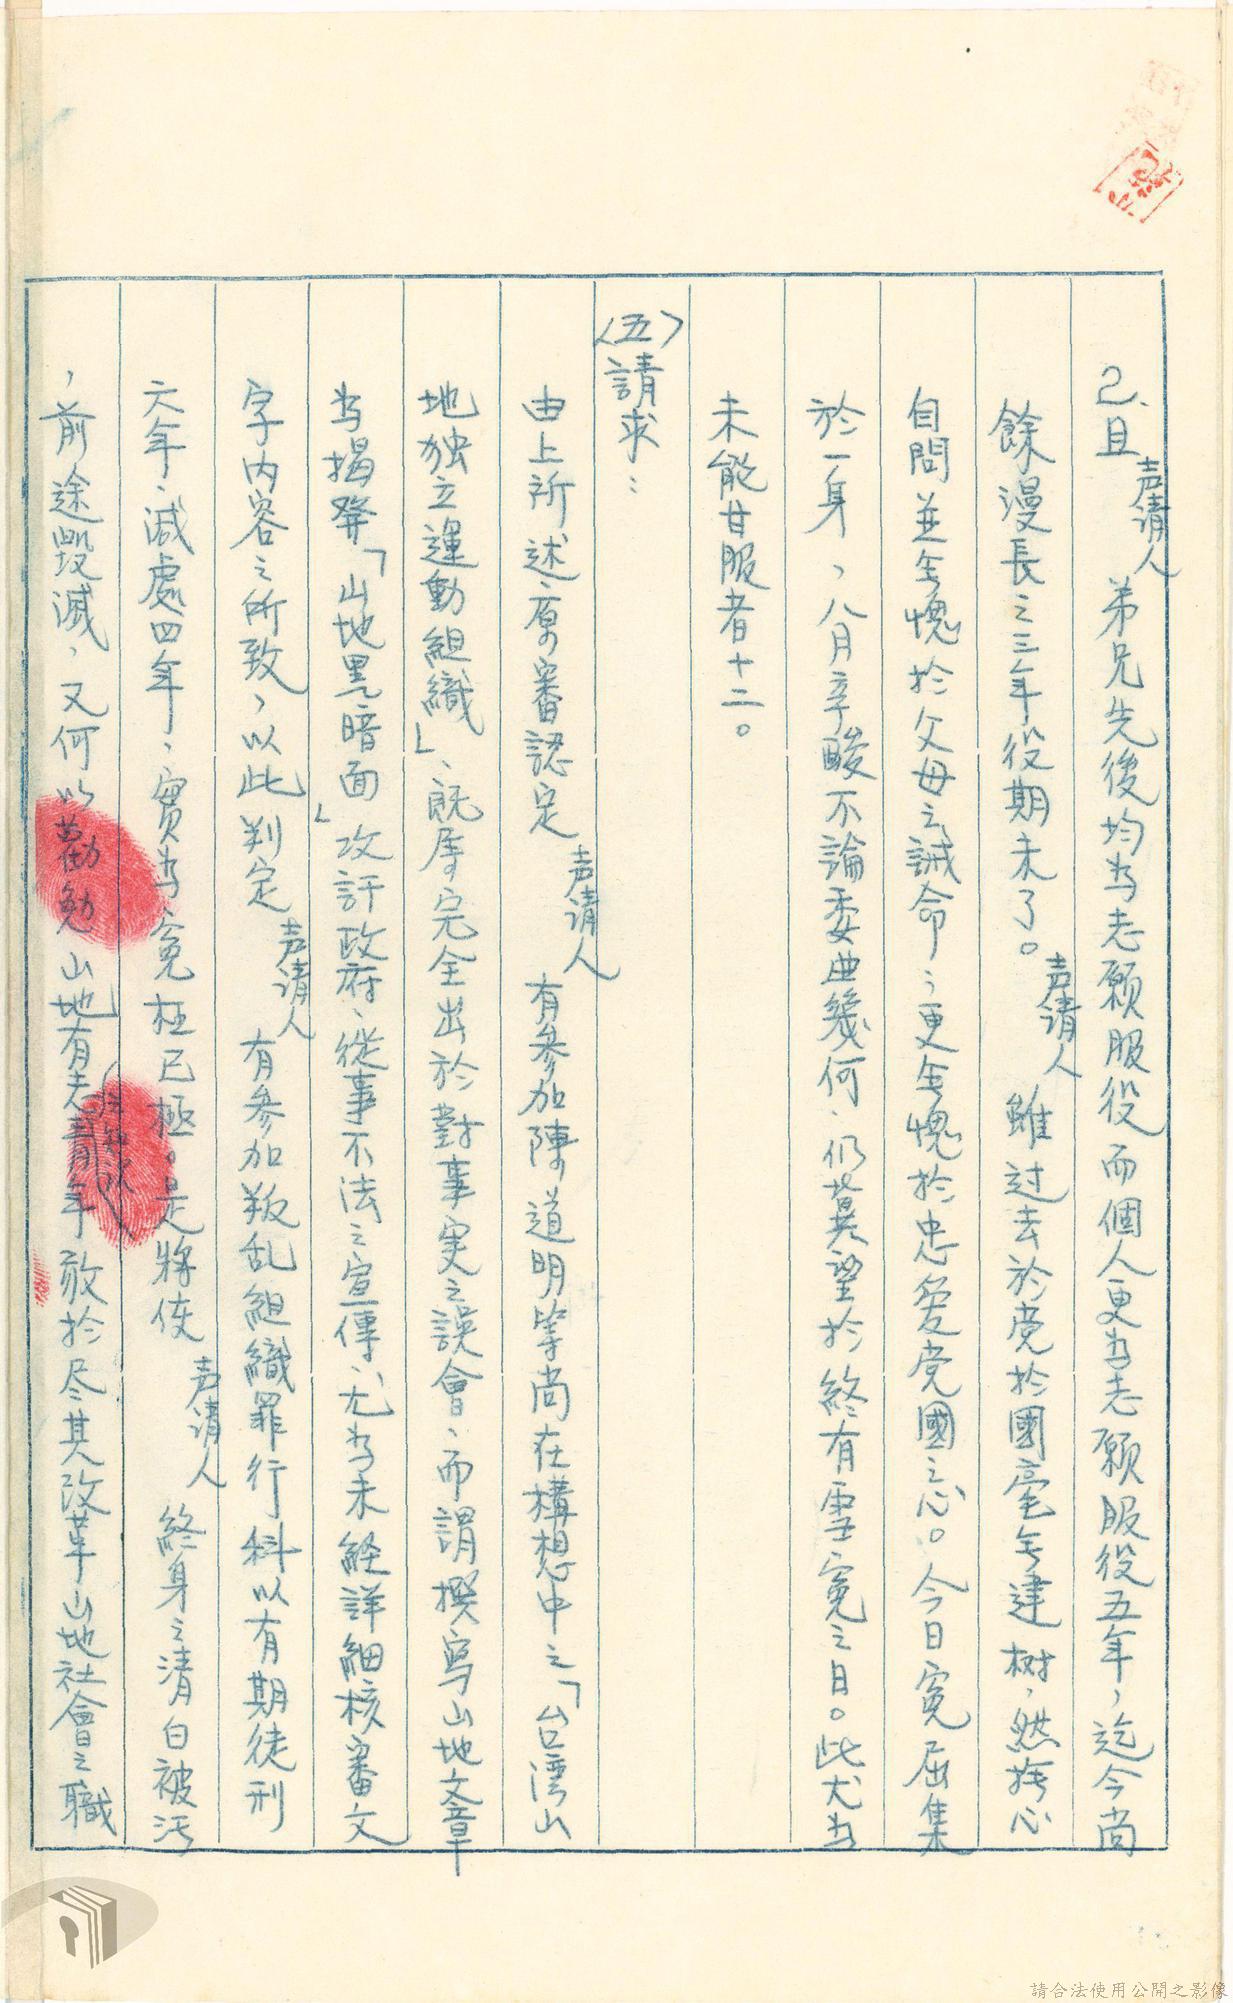 2.且声請人弟兄先後均为志願服役而個人更为志願服役五年，迄今尚
餘漫長之三年役期未了。声請人雖过去於党於國毫无建树，然捫心
自問並无愧於父母之誡命、更无愧於忠爱党國之心。今日冤屈集
於一身，八月辛酸不論委曲幾何、仍冀望於終有雪冤之日。此尤为
未能甘服者十二。
〈五〉請求：
由上所述、原審認定声請人有參加陳道明等尚在構想中之「台湾山
地独立運動組織」、既属完全出於對事实之誤會、而謂撰寫山地文章
为揭發「山地黑暗面」攻訐政府、從事不法之宣傳、尤为未経詳細核審文
字内容之所致，以此判定声請人有參加叛乱組織罪行科以有期徒刑
六年、减處四年、實为冤枉已極。是將使声請人終身之清白被污
，前途毀滅，又何以勸勉山地有志青年敢於尽其改革山地社會之職
請合法使用公開之影像